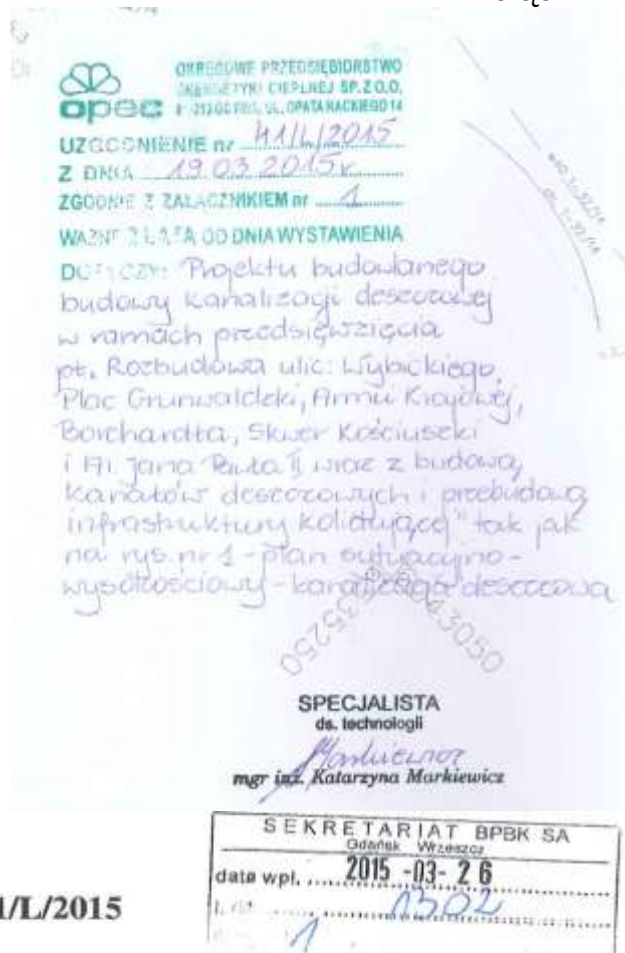 opec
OKRĘGOWE PRZEDSIĘBIORSTWO
ENERGETYKI CIEPLNEJ SP. Z O.O.
UL. OPATA HACKIEGO 14
UZGODNIENIE nr 41/L/2015
Z DNIA 19.03.2015r.
ZGODNIE Z ZAŁĄCZNIKIEM nr 1
WAŻNE 2 LATA OD DNIA WYSTAWIENIA
DOTYCZY: Projektu budowlanego
budowy kanalizacji deszczowej
w ramach przedsięwzięcia
pt. Rozbudowa ulic: Wybickiego,
Plac Grunwaldzki, Armii Krajowej,
Borchardta, Skwer Kościuszki
i Al. Jana Pawła II wraz z budową
kanałów deszczowych i przebudową
infrastruktury kolidującej" tak jak
na rys. nr 1 - plan sytuacyjno-
wysokościowy - kanalizacja deszczowa
SPECJALISTA
ds. technologii
Markiewicz
mgr inż. Katarzyna Markiewicz
SEKRETARIAT BPBK SA
Gdańsk Wrzeszcz
data wpł. 2015 -03- 26
1302
1
1/L/2015